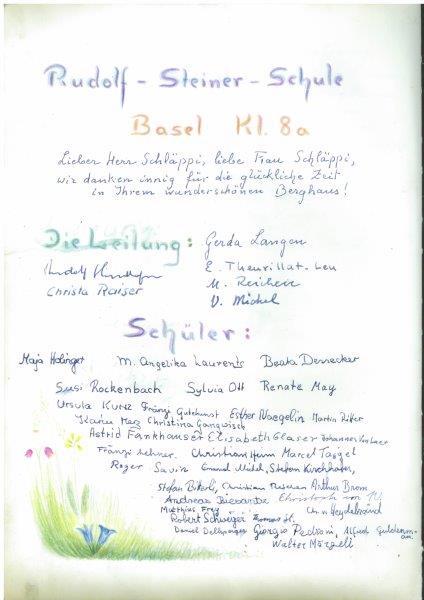 Rudolf - Steiner - Schule
Basel Kl. 8a
Lieber Herr Schläppi, liebe Frau Schläppi,
wir danken innig für die glückliche Zeit
in Ihrem wunderschönen Berghaus!
Die Leitung: Gerda Langen
E. Theurillat-Leu
Christa Kaiser
V. Michel
Schüler:
Maja Holinger M. Angelika Laurents Beata
Susi Rockenbach Sylvia Ott Renate May
Ursula Kunz Fränzi Gutekunst Esther Naegelin Martin Ritter
Christina Gangwisch
Astrid Fankhauser Elisabeth Glaser Johannes
Fränzi Lehner Christian Heim Marcel
Roger Savin Stefan Kirchhofer,
Stefan Christian Arthur Brom
Andreas Christoph
Matthias Frey Ch. v. Heydebrand
Robert Schweiger Thomas
Daniel Giorgio Pedroni, Alfred
Walter